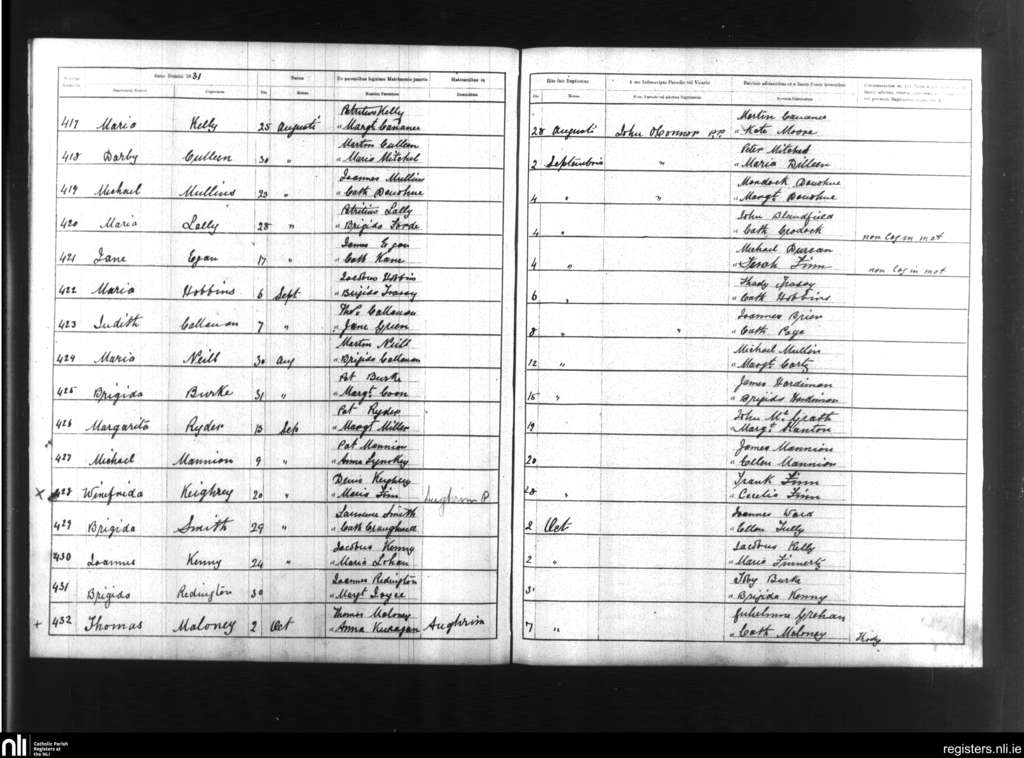 Anno Domini 1831
Natus
Ex parentibus legitimo Matrimonio junctis
Habitantibus in
Die
Mensis
417 Maria Kelly 25 Augusti Patritius Kelly
" Margt. Cananee
418 Darby Culleen 30 " Martin Culleen
" Maria Mitchel
419 Michael Mullins 23 " Joannes Mullins
" Cath Donohue
420 Maria Lally 28 " Patritius Lally
" Brigida Forde
421 Jane Egan 17 " James Egan
" Cath Kane
422 Maria Hobbins 6 Sept Jacobus Hobbins
" Brigida Treasy
423 Judith Callanan 7 " Thos. Callanan
" Jane Green
424 Maria Neill 30 Aug Martin Neill
" Brigida Callanan
425 Brigida Burke 31 " Pat Burke
" Margt. Coon
426 Margarita Ryder 15 Sep Pat Ryder
" Margt Miller
427 Michael Mannion 9 " Pat Mannion
" Anna Lynskey
X 428 Winifrida Keighrey 20 " Denis Keighrey
" Maria Finn Aughrim P.
429 Brigida Smith 29 " Laurence Smith
" Cath Craughwell
430 Joannes Kenny 24 " Jacobus Kenny
" Maria Lohan
431 Brigida Redington 30 Joannes Redington
" Margt Joyce
+ 432 Thomas Maloney 2 Oct Thomas Maloney
" Anna Aughrim
Rite fuit Baptizatus
A me Infrascripto Parocho vel Vicario
Die
Mensis
28 Augusti John O'Connor P.P. Martin Cananee
" Kate Moore
2 Septembris " Peter Mitchel
" Maria Dilleen
4 " " Mordock Donohue
" Margt. Donohue
4 " John Blandfield
" Cath Cradock non Cog in mat
4 " Michael Duncan
" Sarah Finn non Cog in mat
6 " Thady Treasy
" Cath Hobbins
8 " " Joannes Brien
" Cath Page
12 " Michael Mullin
" Margt. Carty
15 " James Hardiman
" Brigida Hardiman
19 John Mc Grath
" Margt. Stanton
20 James Mannion
" Ellen Mannion
28 " Frank Finn
" Cecelia Finn
2 Oct Joannes Ward
" Ellen Tully
2 " Jacobus Kelly
" Maria Finnerty
3 " Toby Burke
" Brigida Kenny
7 " Gulielmus Grehan
" Cath Maloney
nli Catholic Parish
Registers at
the NLI
registers.nli.ie